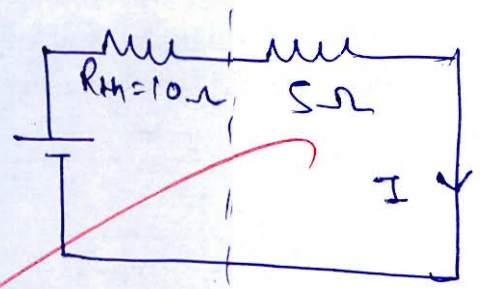 Rth=10Ω
5Ω
I